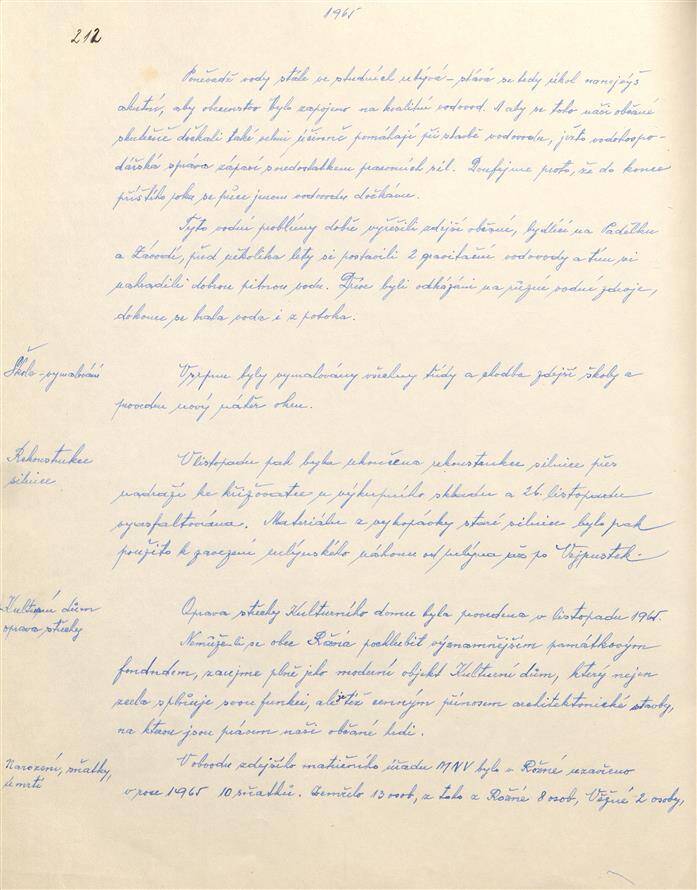 1965
212
Poněvadž vody stále ve studních ubývá - stává se tedy úkol nanejvýš
akutní, aby obecenstvo bylo zapojeno na kvalitní vodovod. A aby se toho naši občané
skutečně dočkali také velmi účinně pomáhají při stavbě vodovodu, jesto vodohospo-
dářská správa zápasí s nedostatkem pracovních sil. Doufejme proto, že do konce
příštího roku se přece jenom vodovodu dočkáme.
Tyto vodní problémy dobře vyřešili zdejší občané, bydlící na Padělku
a Závodí, před několika lety si postavili 2 gravitační vodovody a tím si
nahradili dobrou pitnou vodu. Dříve byli odkázáni na různé vodní zdroje,
dokonce se brala voda i z potoka.
Škola - vymalování
V srpnu byly vymalovány všechny třídy a chodba zdejší školy a
proveden nový nátěr oken.
Rekonstrukce
silnice
V listopadu pak byla ukončena rekonstrukce silnice přes
nádraží ke křižovatce u výkupního skladu a 26. listopadu
vyasfaltována. Materiálu z vykopávky staré silnice bylo pak
použito k zavezení mlýnského náhonu od mlýna až po Výpustek.
Kulturní dům
oprava střechy
Oprava střechy Kulturního domu byla provedena v listopadu 1965.
Nemůže-li se obec Rožná pochlubit významnějším památkovým
fondem, zaujme plně jeho moderní objekt Kulturní dům, který nejen
zcela splňuje svou funkci, ale je též cenným přínosem architektonické stavby,
na kterou jsou právem naši občané hrdi.
Narození, sňatky,
úmrtí
V obvodu zdejšího matričního úřadu MNV bylo v Rožné uzavřeno
v roce 1965 10 sňatků. Zemřelo 13 osob, z toho z Rožné 8 osob, Věžné 2 osoby,